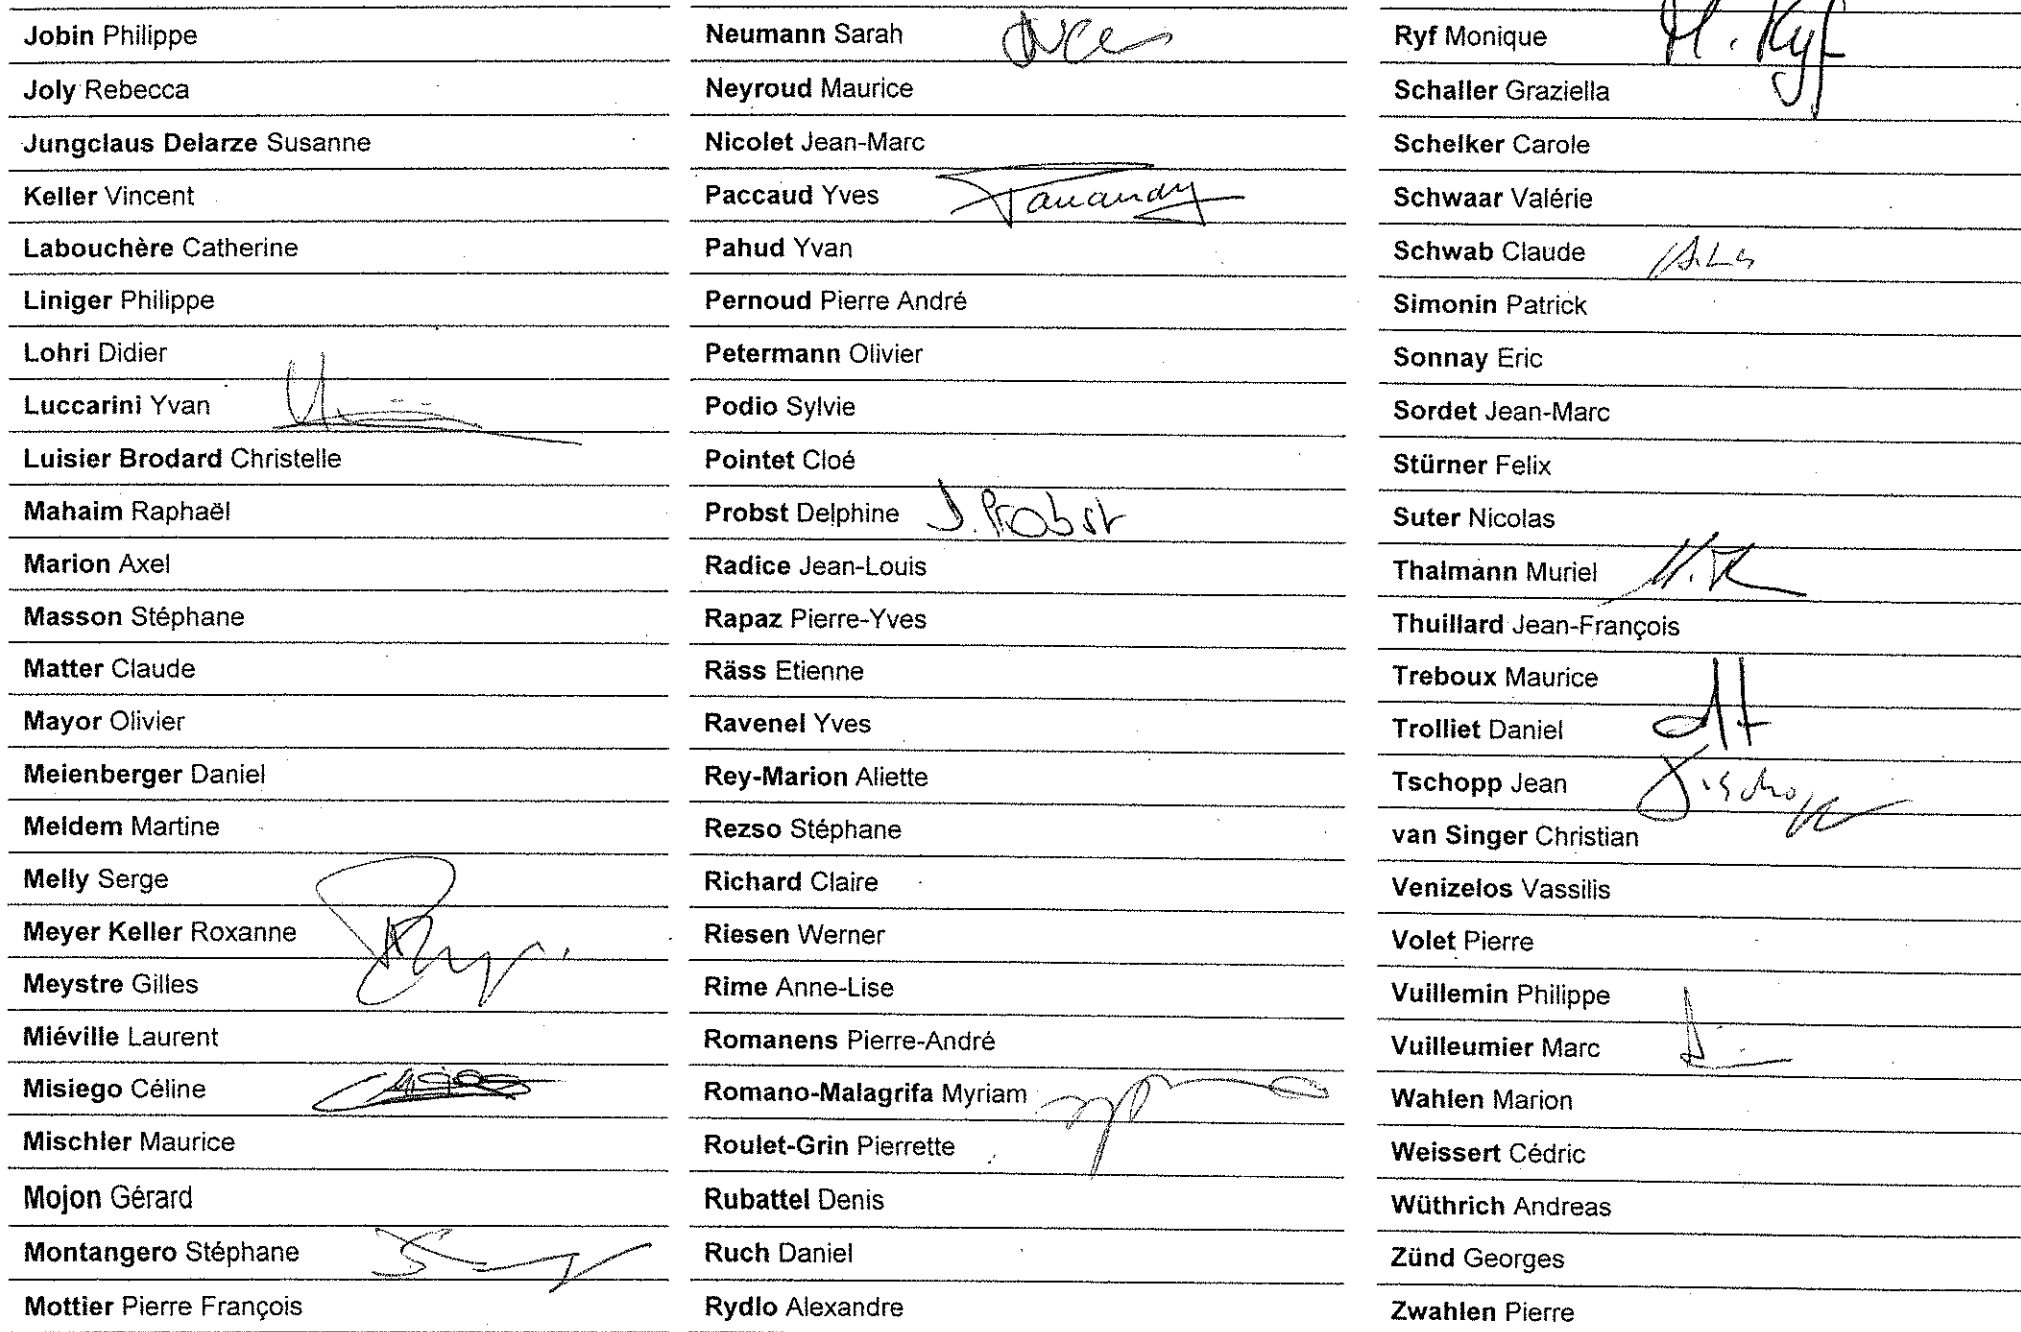 Jobin Philippe
Joly Rebecca
Jungclaus Delarze Susanne
Keller Vincent
Labouchère Catherine
Liniger Philippe
Lohri Didier
Luccarini Yvan
Luisier Brodard Christelle
Mahaim Raphaël
Marion Axel
Masson Stéphane
Matter Claude
Mayor Olivier
Meienberger Daniel
Meldem Martine
Melly Serge
Meyer Keller Roxanne
Meystre Gilles
Miéville Laurent
Misiego Céline
Mischler Maurice
Mojon Gérard
Montangero Stéphane
Mottier Pierre François
Neumann Sarah
Neyroud Maurice
Nicolet Jean-Marc
Paccaud Yves
Pahud Yvan
Pernoud Pierre André
Petermann Olivier
Podio Sylvie
Pointet Cloé
Probst Delphine D. Probst
Radice Jean-Louis
Rapaz Pierre-Yves
Räss Etienne
Ravenel Yves
Rey-Marion Aliette
Rezso Stéphane
Richard Claire
Riesen Werner
Rime Anne-Lise
Romanens Pierre-André
Romano-Malagrifa Myriam
Roulet-Grin Pierrette
Rubattel Denis
Ruch Daniel
Rydlo Alexandre
Ryf Monique M. Ryf
Schaller Graziella
Schelker Carole
Schwaar Valérie
Schwab Claude
Simonin Patrick
Sonnay Eric
Sordet Jean-Marc
Stürner Felix
Suter Nicolas
Thalmann Muriel
Thuillard Jean-François
Treboux Maurice
Trolliet Daniel
Tschopp Jean
van Singer Christian
Venizelos Vassilis
Volet Pierre
Vuillemin Philippe
Vuilleumier Marc
Wahlen Marion
Weissert Cédric
Wüthrich Andreas
Zünd Georges
Zwahlen Pierre